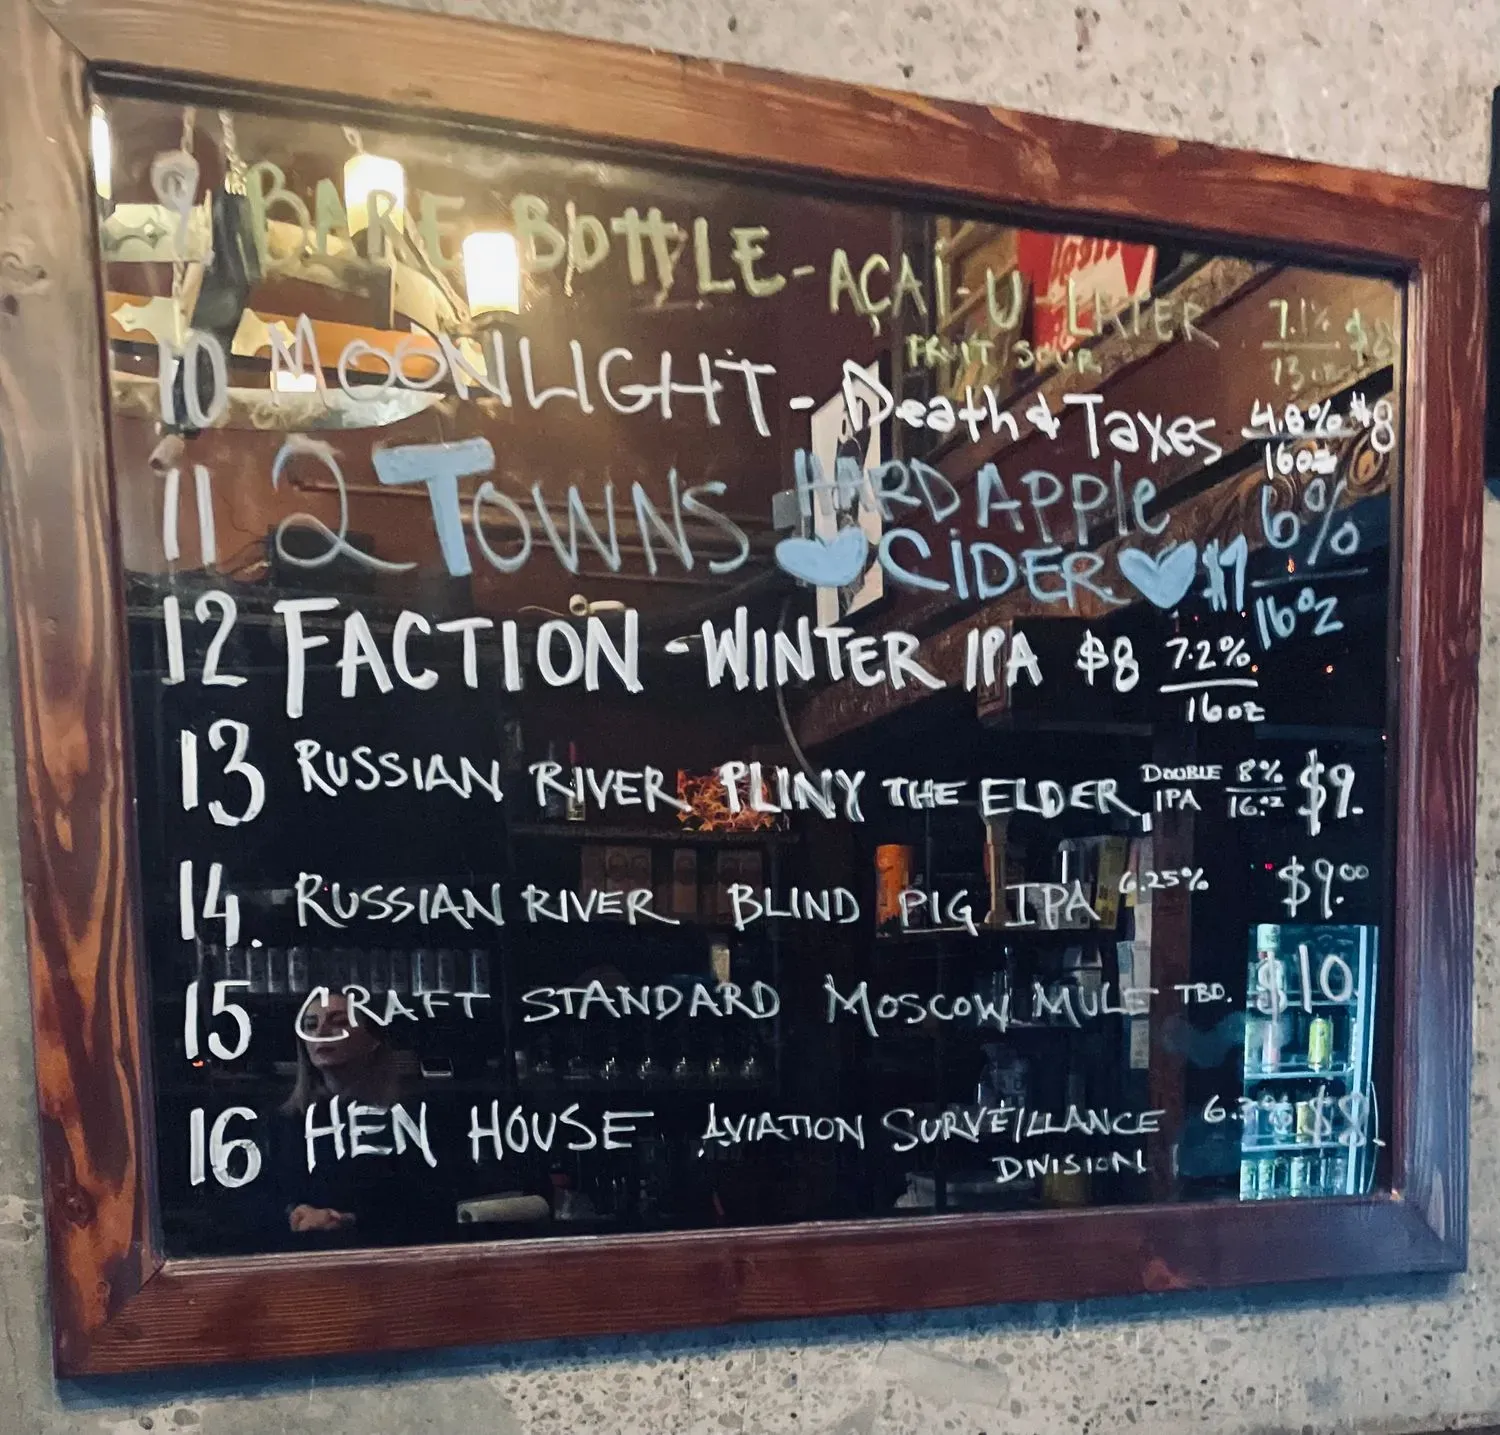 9 BARE BOTTLE - AÇAÍ-U LATER 7.1% $8
FRUIT SOUR 13oz
10 MOONLIGHT - Death & Taxes 4.8% $8
16oz
11 2 TOWNS HARD APPLE 6%
CiDER $7 16oz
12 FACTION - WINTER IPA $8 7.2%
16oz
13 RUSSIAN RIVER PLINY THE ELDER DOUBLE 8% $9.
IPA 16oz
14. RUSSIAN RIVER BLIND PIG IPA 6.25% $9.00
15 CRAFT STANDARD MOSCOW MULE TBD. $10
16 HEN HOUSE AVIATION SURVEILLANCE $8
DIVISION